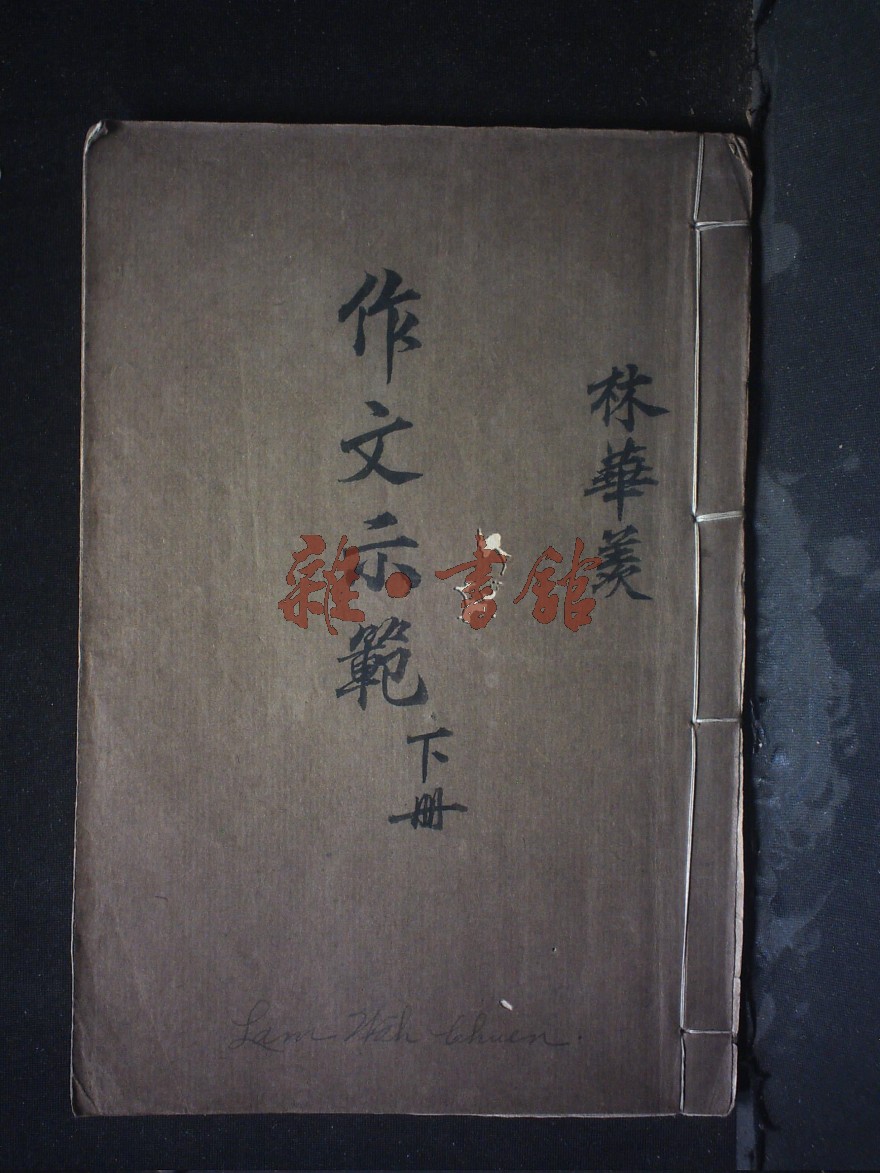 林華羨
作文示範
下册
雜·書館
Lam Wah Chuen.